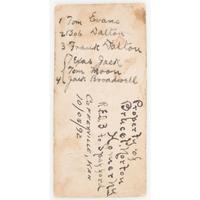 1 Tom Evans
2 Bob Dalton
3 Frank Dalton
Texas Jack
Tom Moon
4 Jack Broadwell
Property of
Bruce Norton
Homer NY
R.F.D. 3
Coffeyville, Kan
10/05/92